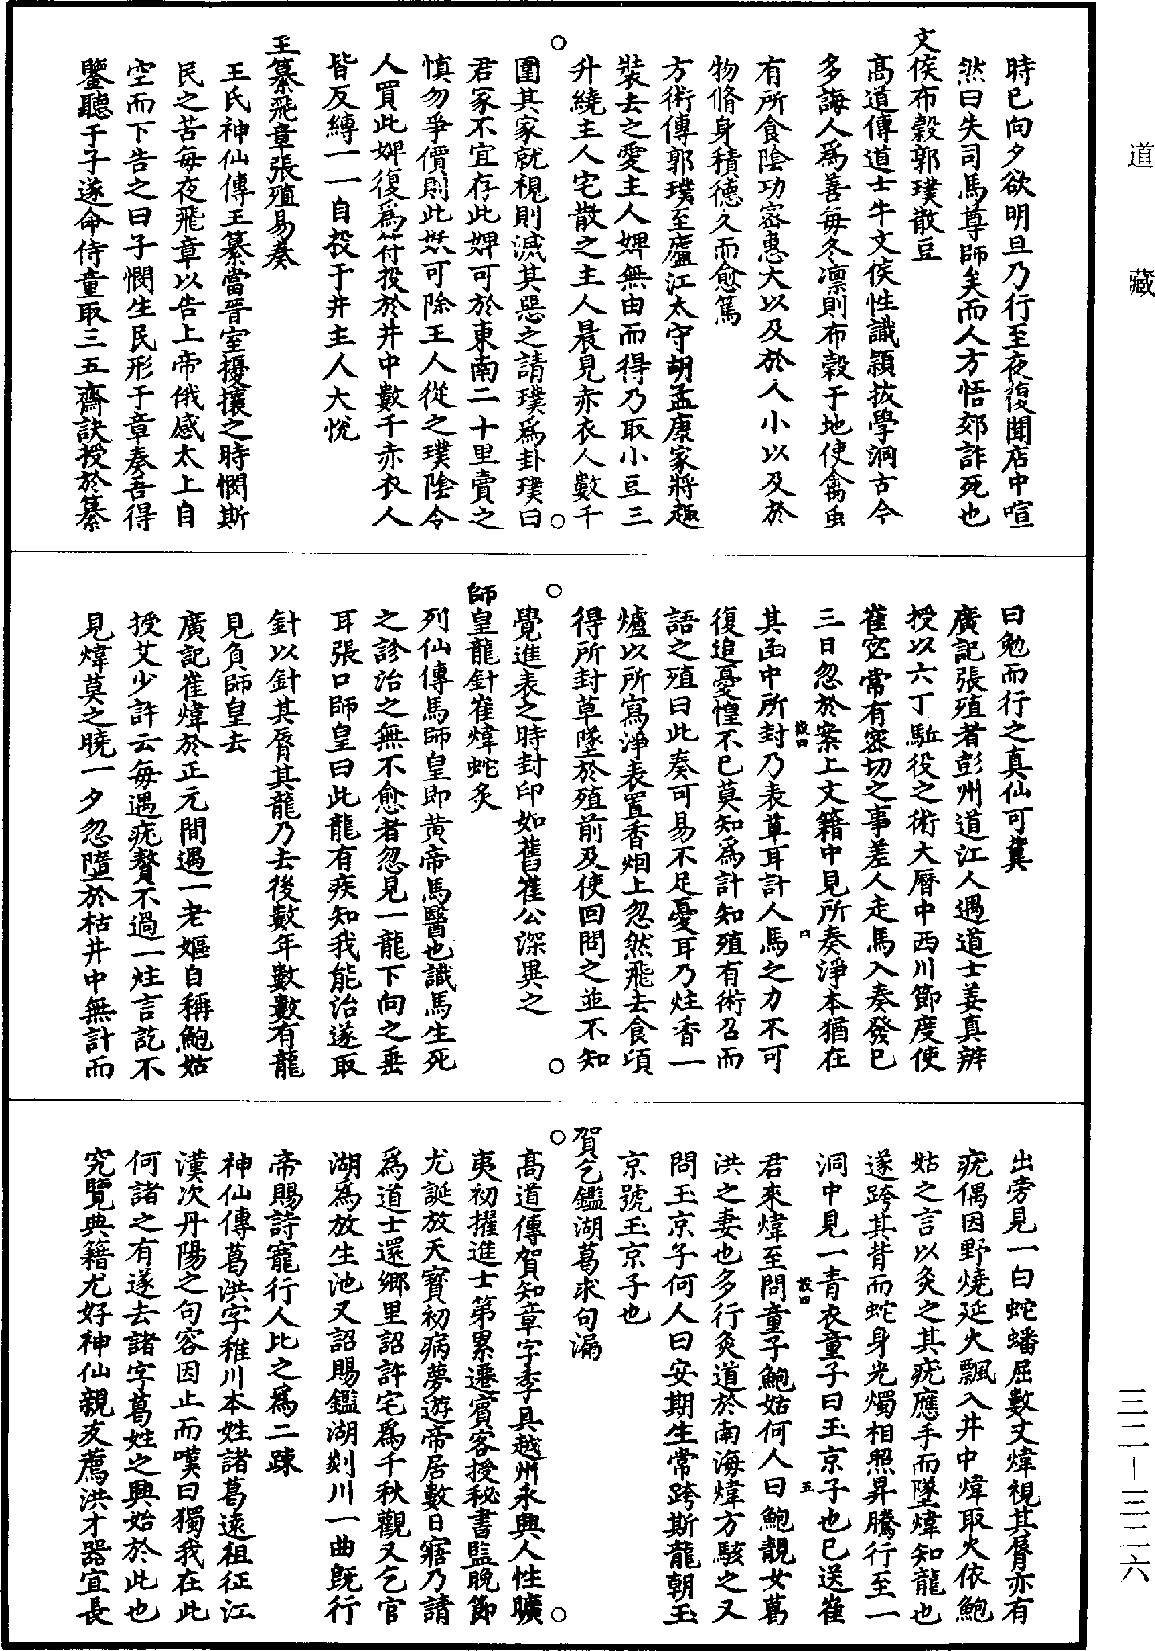 道藏
時已向夕欲明旦乃行至夜復聞店中喧
然曰失司馬尊師矣而人方悟郊詐死也
文侯布穀郭璞散豆
高道傳道士牛文侯性識穎拔學洞古今
多誨人為善每冬凛則布穀于地使禽虫
有所食陰功密惠大以及於人小以及於
物脩身積德久而愈篤
方術傳郭璞至廬江太守胡孟康家將趣
裝去之愛主人婢無由而得乃取小豆三
升繞主人宅散之主人晨見赤衣人數千
圍其家就視則滅其惡之請璞為卦璞曰
君家不宜存此婢可於東南二十里賣之
慎勿爭價則此妖可除主人從之璞陰令
人買此婢復為符投於井中數千赤衣人
皆反縛一一自投于井主人大悅
王纂飛章張殖易奏
王氏神仙傳王纂當晋室擾攘之時憫斯
民之苦每夜飛章以告上帝俄感太上自
空而下告之曰子憫生民形于章奏吾得
鑒聽于子遂命侍童取三五齋訣授於纂
曰勉而行之真仙可冀
廣記張殖者彭州道江人遇道士姜真辨
授以六丁駈役之術大曆中西川節度使
崔寧常有密切之事差人走馬入奏發已
三日忽於案上文籍中見所奏淨本猶在
其函中所封乃表草耳計人馬之力不可
復追憂惶不已莫知為計知殖有術召而
語之殖曰此奏可易不足憂耳乃炷香一
爐以所寫淨表置香烟上忽然飛去食頃
得所封草墜於殖前及使回問之並不知
覺進表之時封印如舊崔公深異之
師皇龍針崔煒蛇灸
列仙傳馬師皇即黃帝馬醫也識馬生死
之診治之無不愈者忽見一龍下向之垂
耳張口師皇曰此龍有疾知我能治遂取
針以針其脣其龍乃去後數年數數有龍
見負師皇去
廣記崔煒於正元間遇一老嫗自稱鮑姑
授艾少許云每遇疣贅不過一炷言訖不
見煒莫之曉一夕忽墮於枯井中無計而
出旁見一白蛇蟠屈數丈煒視其脣亦有
疣偶因野燒延火飄入井中煒取火依鮑
姑之言以灸之其疣應手而墜煒知龍也
遂跨其背而蛇身光燭相照昇騰行至一
洞中見一青衣童子曰玉京子也已送崔
君來煒至問童子鮑姑何人曰鮑靚女葛
洪之妻也多行灸道於南海煒方駭之又
問玉京子何人曰安期生常跨斯龍朝玉
京號玉京子也
賀乞鑑湖葛求句漏
高道傳賀知章字季真越州永興人性曠
夷初擢進士第累遷賓客授秘書監晚節
尤誕放天寶初病夢遊帝居數日寤乃請
為道士還鄉里詔許宅為千秋觀又乞官
湖為放生池又詔賜鑑湖剡川一曲旣行
帝賜詩寵行人比之為二踈
神仙傳葛洪字稚川本姓諸葛遠祖征江
漢次丹陽之句容因止而嘆曰獨我在此
何諸之有遂去諸字葛姓之興始於此也
究覽典籍尤好神仙親友薦洪才器宜長
三二—三二六